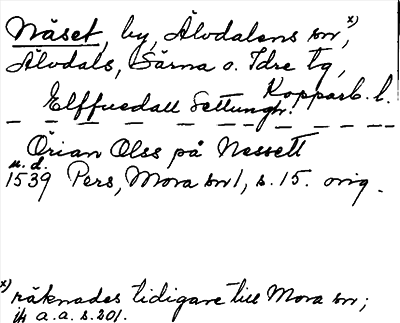 Näset, by, Älvdalens sn x),
Älvdals, Särna o. Idre tg,
Kopparb. l.
Elffuedall Settungh.
Örian Olss på Nessett
u. d.
1539 Pers, Mora sn 1, s. 15. orig.
x) räknades tidigare till Mora sn;
jfr a.a. s. 201.